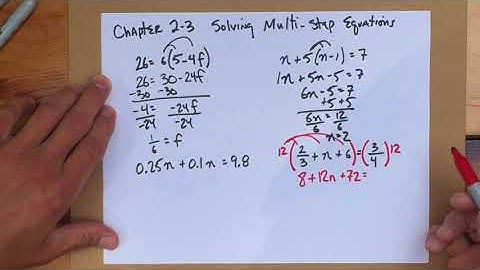 Chapter 2-3 Solving Multi-Step Equations
26=6(5-4f)
26=30-24f
-30 -30
-4=-24f
-24 -24
1/6=f
0.25n+0.1n=9.8
n+5(n-1)=7
1n+5n-5=7
6n-5=7
+5 +5
6n/6=12/6
n=2
12(2/3+n+6)=(3/4)12
8+12n+72=